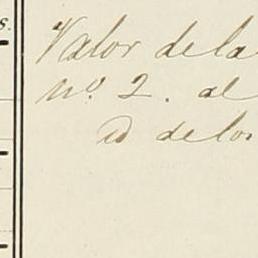 s.
Valor de la
nº 2. al
id de los